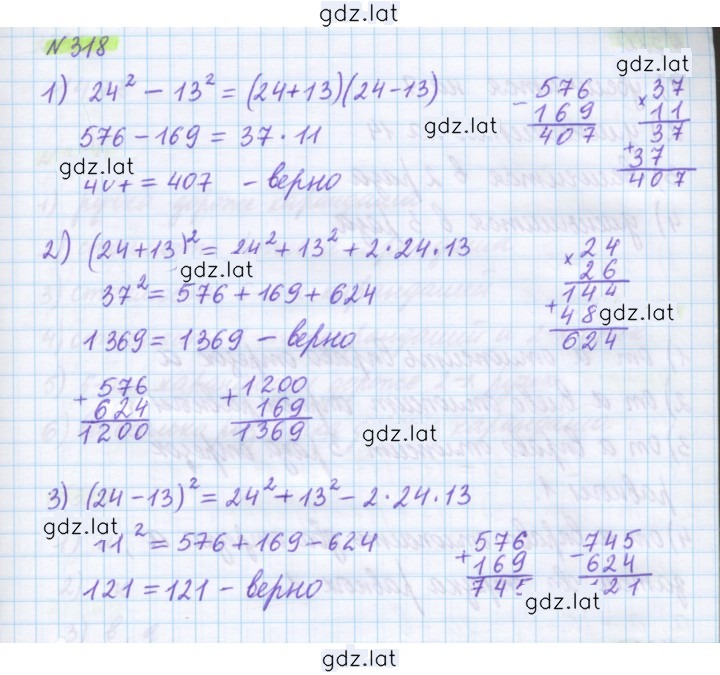 gdz.lat
№318
gdz.lat
1) 24² − 13² = (24+13)(24−13)
576 − 169 = 37 · 11
gdz.lat
407 = 407 − верно
− 576
169
407
gdz.lat
× 37
11
37
+ 37
407
2) (24+13)² = 24² + 13² + 2·24·13
gdz.lat
37² = 576 + 169 + 624
1369 = 1369 − верно
× 24
26
144
+ 48
gdz.lat
624
+ 576
624
1200
+ 1200
169
1369
gdz.lat
3) (24−13)² = 24² + 13² − 2·24·13
gdz.lat
11² = 576 + 169 − 624
121 = 121 − верно
+ 576
169
745
− 745
624
121
gdz.lat
gdz.lat